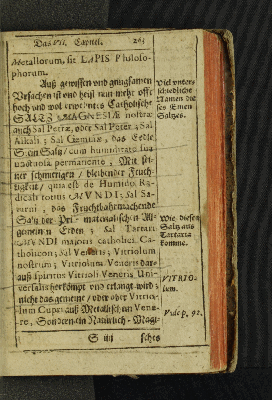 Das VII. Capitel. 263
Metallorum, sit LAPIS Philoso-
phorum.
Auß gewissen und gnugsamen
Ursachen ist und heist nun mehr offt
hoch und wol erwehntes Catholische
SALTZ MAGNESIÆ nostræ
auch Sal Petræ, oder Sal Peter; Sal
Alkali; Sal Gemmæ, das Edle
Stein Saltz / cum humiditate sua
unctuosa permanente; Mit sei-
ner schmierigen / bleibender Feuch-
tigkeit / qua est de Humido Ra-
dicali totius MVNDI; Sal Sa-
turni, das Fruchtbahrmachende
Saltz der Pri-materialischen All-
gemeinen Erden; Sal Tartari
MVNDI majoris catholici Ca-
tholicon; Sal Veneris; Vitriolum
nostrum; Vitriolum Veneris dar-
auß spiritus Vitrioli Veneris Uni-
versalis herkömpt und erlangt wird;
nicht das gemeine / oder ober Vitrio-
lum Cupri auß Metallischem Vene-
re, Sondern ein Natürlich-Magi-
S iiij sches
Viel unter-
schiedliche
Namen die-
ses Einen
Saltzes.
Wie diesen
Saltz aus
Tartaria
komme.
VITRIO-
lum.
Vide p. 92.